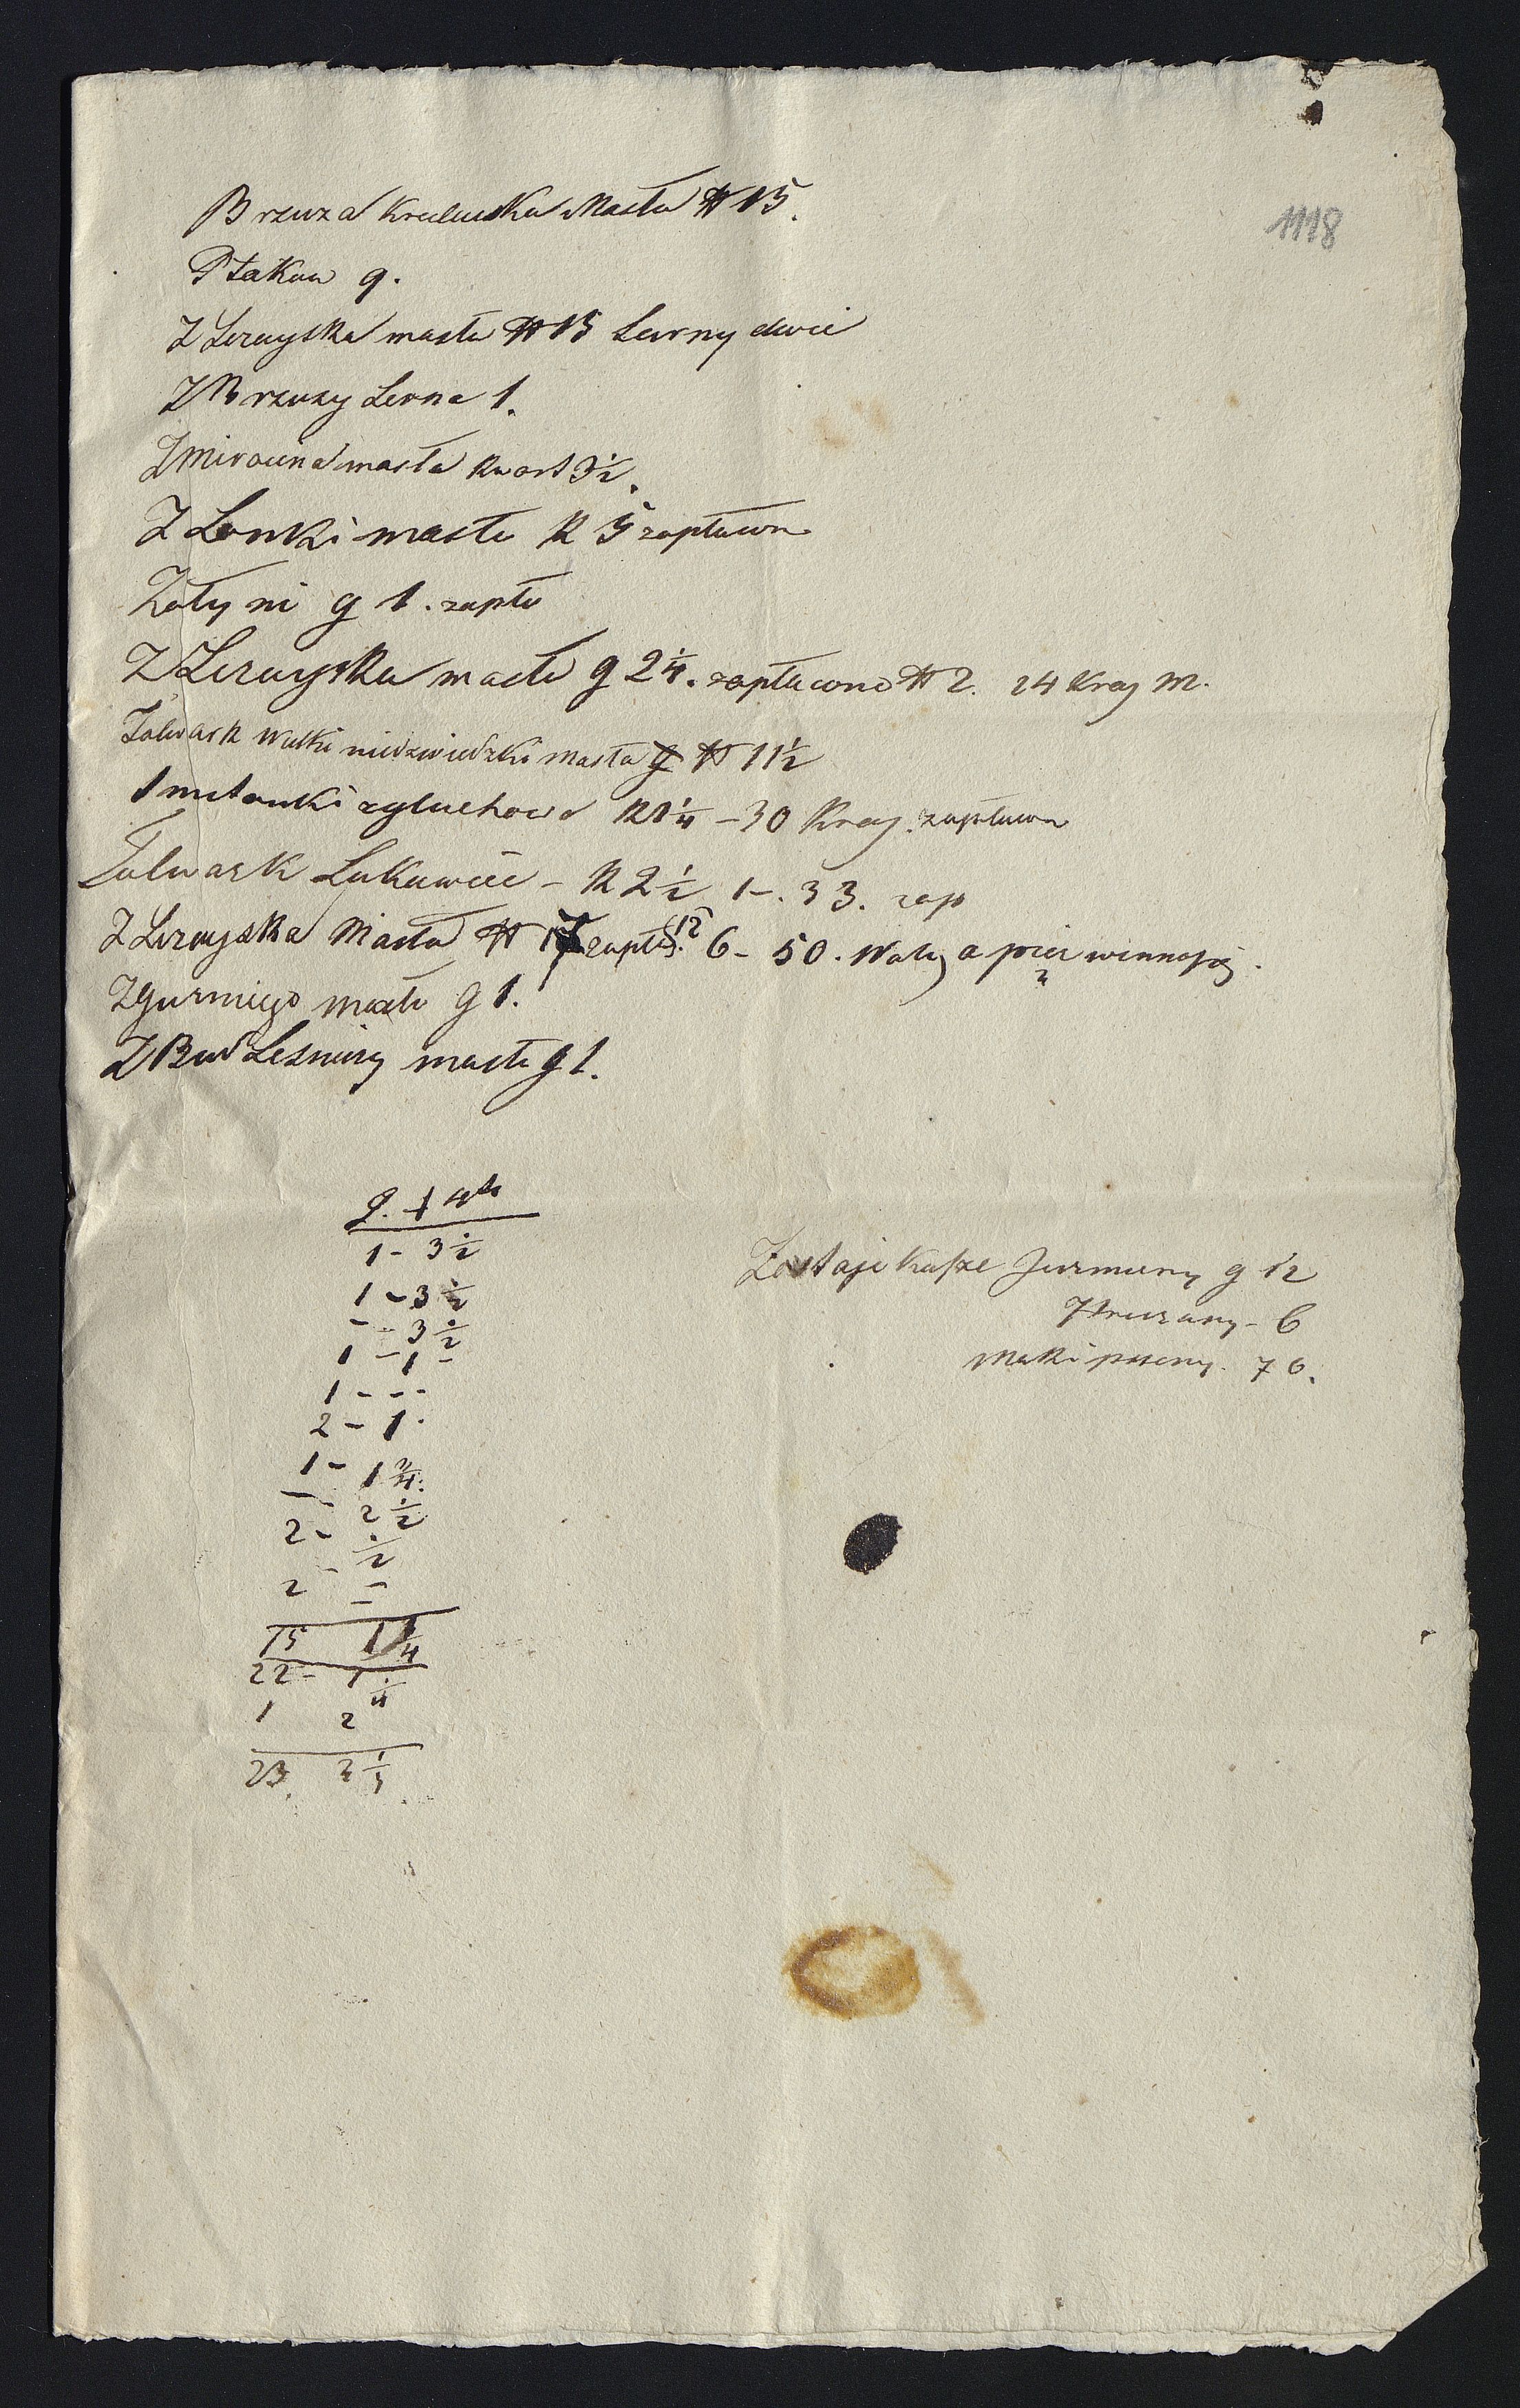 1118
Brzuza Kruluska Masła # 15.
Ptakow g.
Z Lezayska masła # 15 Sarny dwie
Z Brzuzy Serna 1.
Z mirocina masła kwart 3½.
Z Lonki masła k 5 zapłacon
Zołyni g 1. zapła
Z Lezayska masła g 2¼. zapłacono # 2. 24 kraj m.
Folwark Wulki niedzwiedzki masła g # 11½
Smetanki zyluchowa k 1¼ - 30 Kraj. zapłacon
Folwark Lukawiec - k 2½ 1-. 33. zap
Z Lezayska Masła # 17 zapła. 12 6 - 50. Waly a pier winnosz.
Z gurniego masła g 1.
Z Bud Lesniczy masła g 1.
1 - 3½
1 - 3½
- - 3½
1 - 1 -
1 - - -
2 - 1.
1 - 1¾.
2 - 2½
- ½
2 -
15 1¼
22 - 1¼
1 2
23. 3
Zostaje Kasze Jurmuny g 12
Hreczany - 6
Maki psseny. 76.